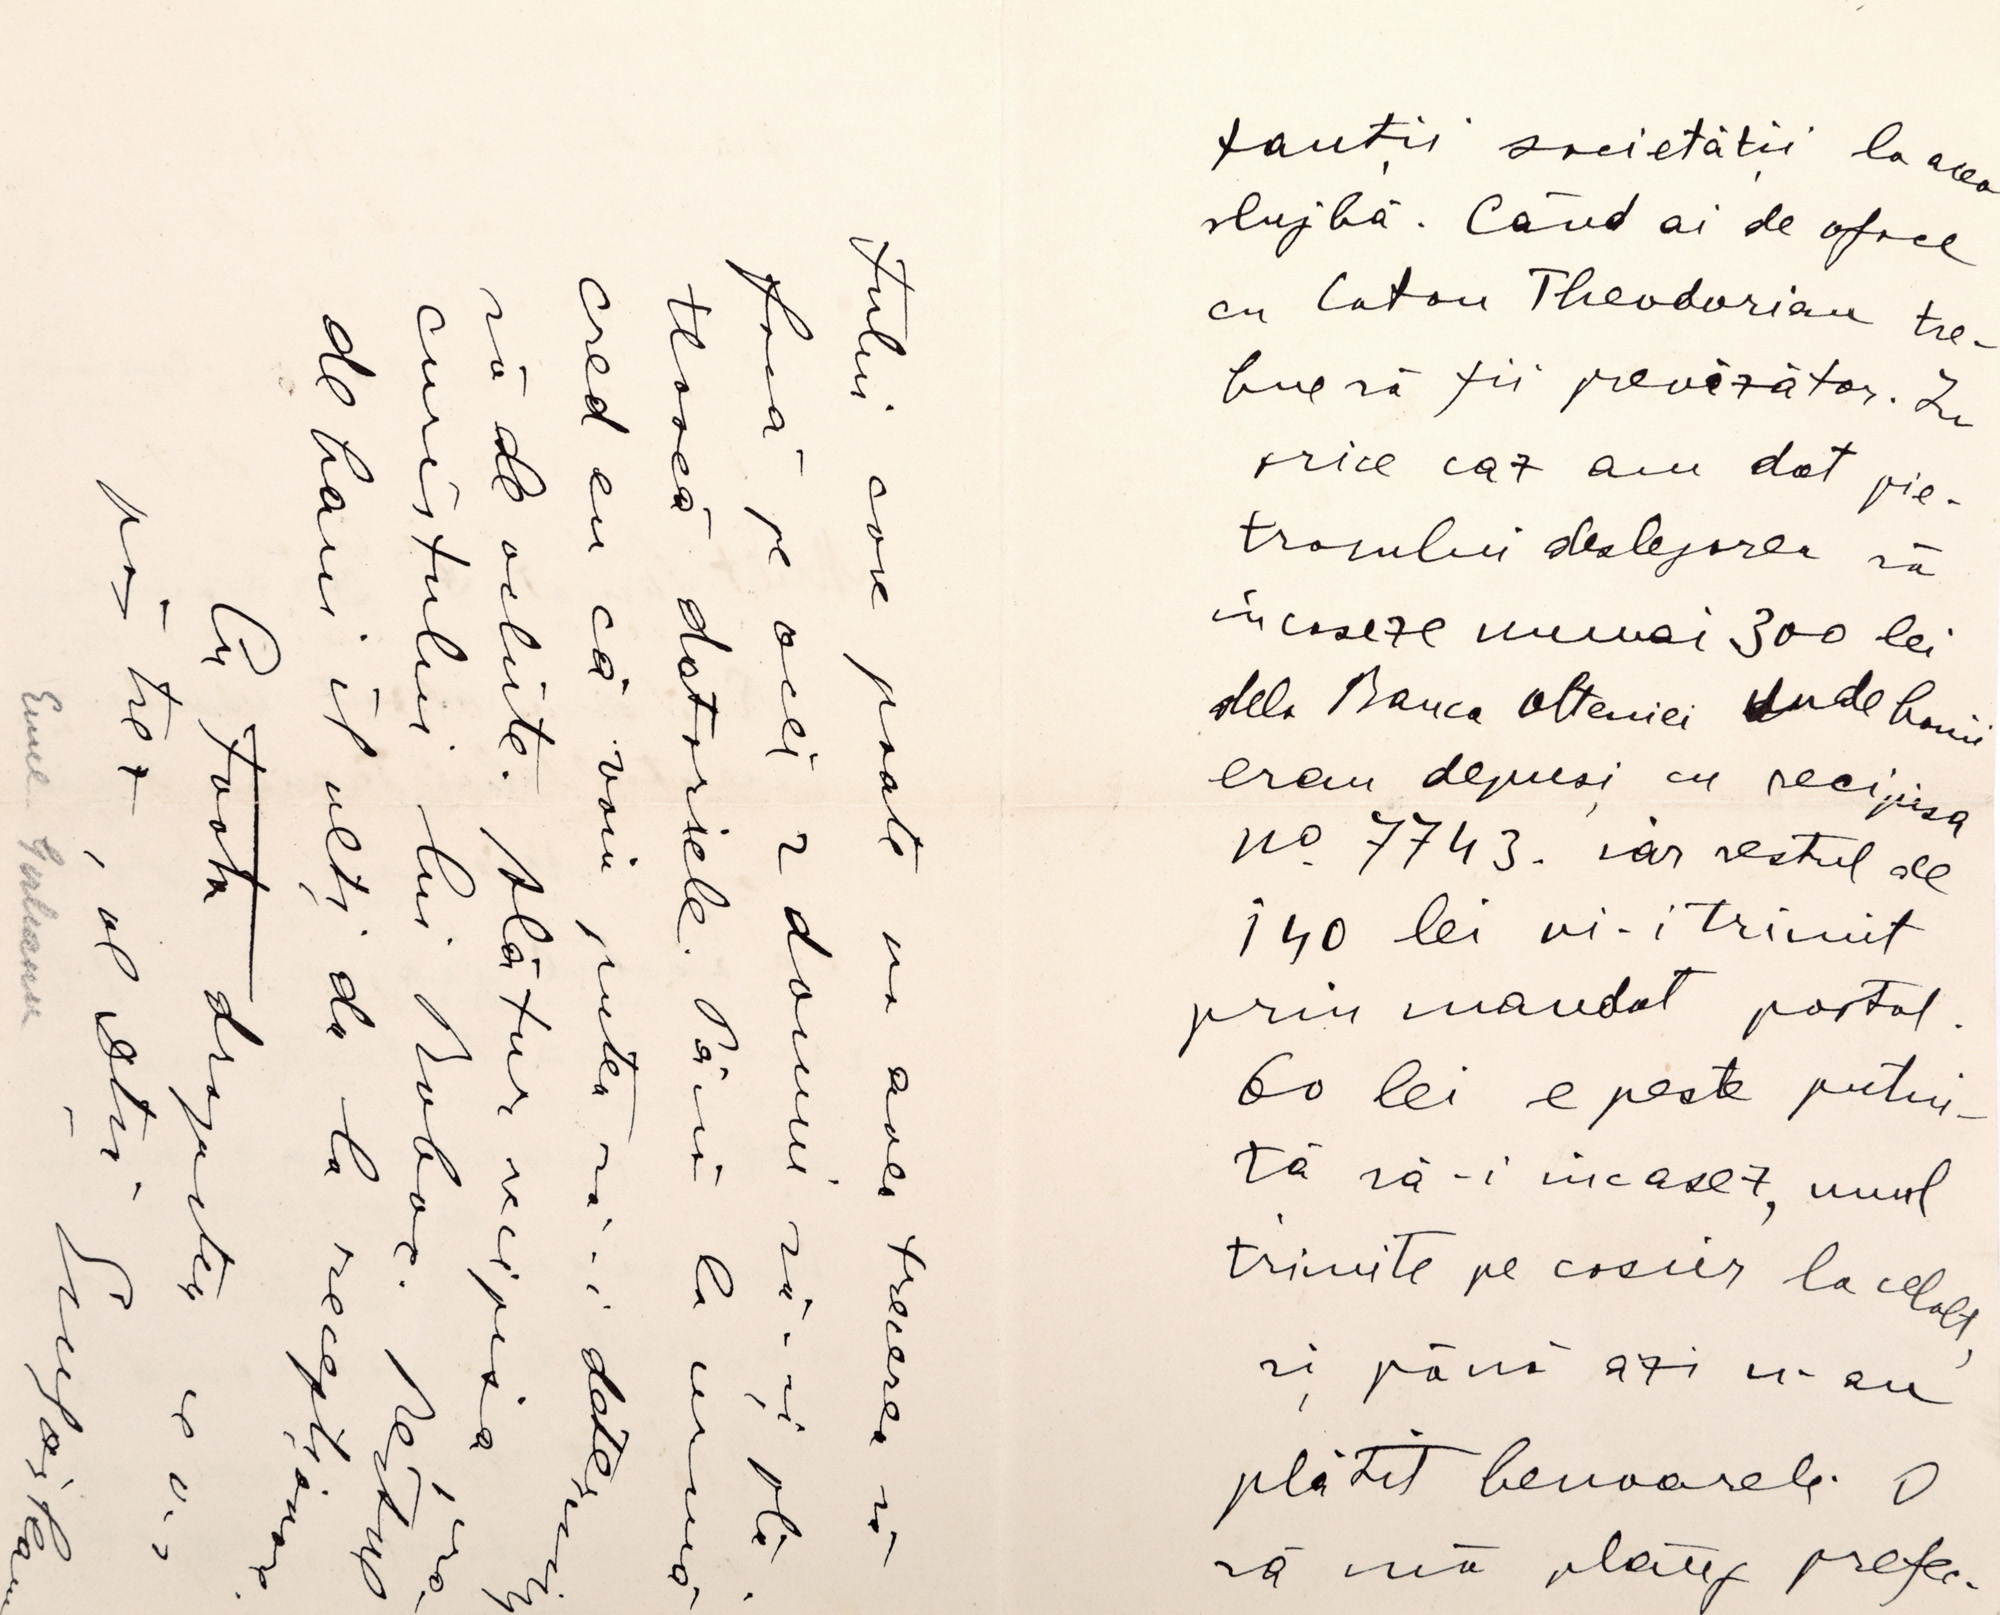 tanții societății la acea
slujbă. Când ai de aface
cu Caton Theodorian tre-
bue să fii prevăzător. În
orice caz am dat pie-
trosului deslegarea să
încaseze numai 300 lei
dela Banca Olteniei unde banii
erau depuși cu recipisa
No. 7743. iar restul de
140 lei vi-i trimit
prin mandat postal.
60 lei e peste putin-
tă să-i încasez, unul
trimite pe casier la celalt,
și până azi n-au
plătit benoarele. O
să mă plâng prefec-
tului care poate va avea trecerea să
facă pe acei 2 domni să-și plă-
tească datoriile. Până la urmă
cred eu că voiu putea să-i determin
să de achite. Alătur recipisa
curistului lui Boboc. Restul
de bani îl veți da la recepționare.
Cu toată dragostea
păstrez, al Dtri
Emil Gârleanu